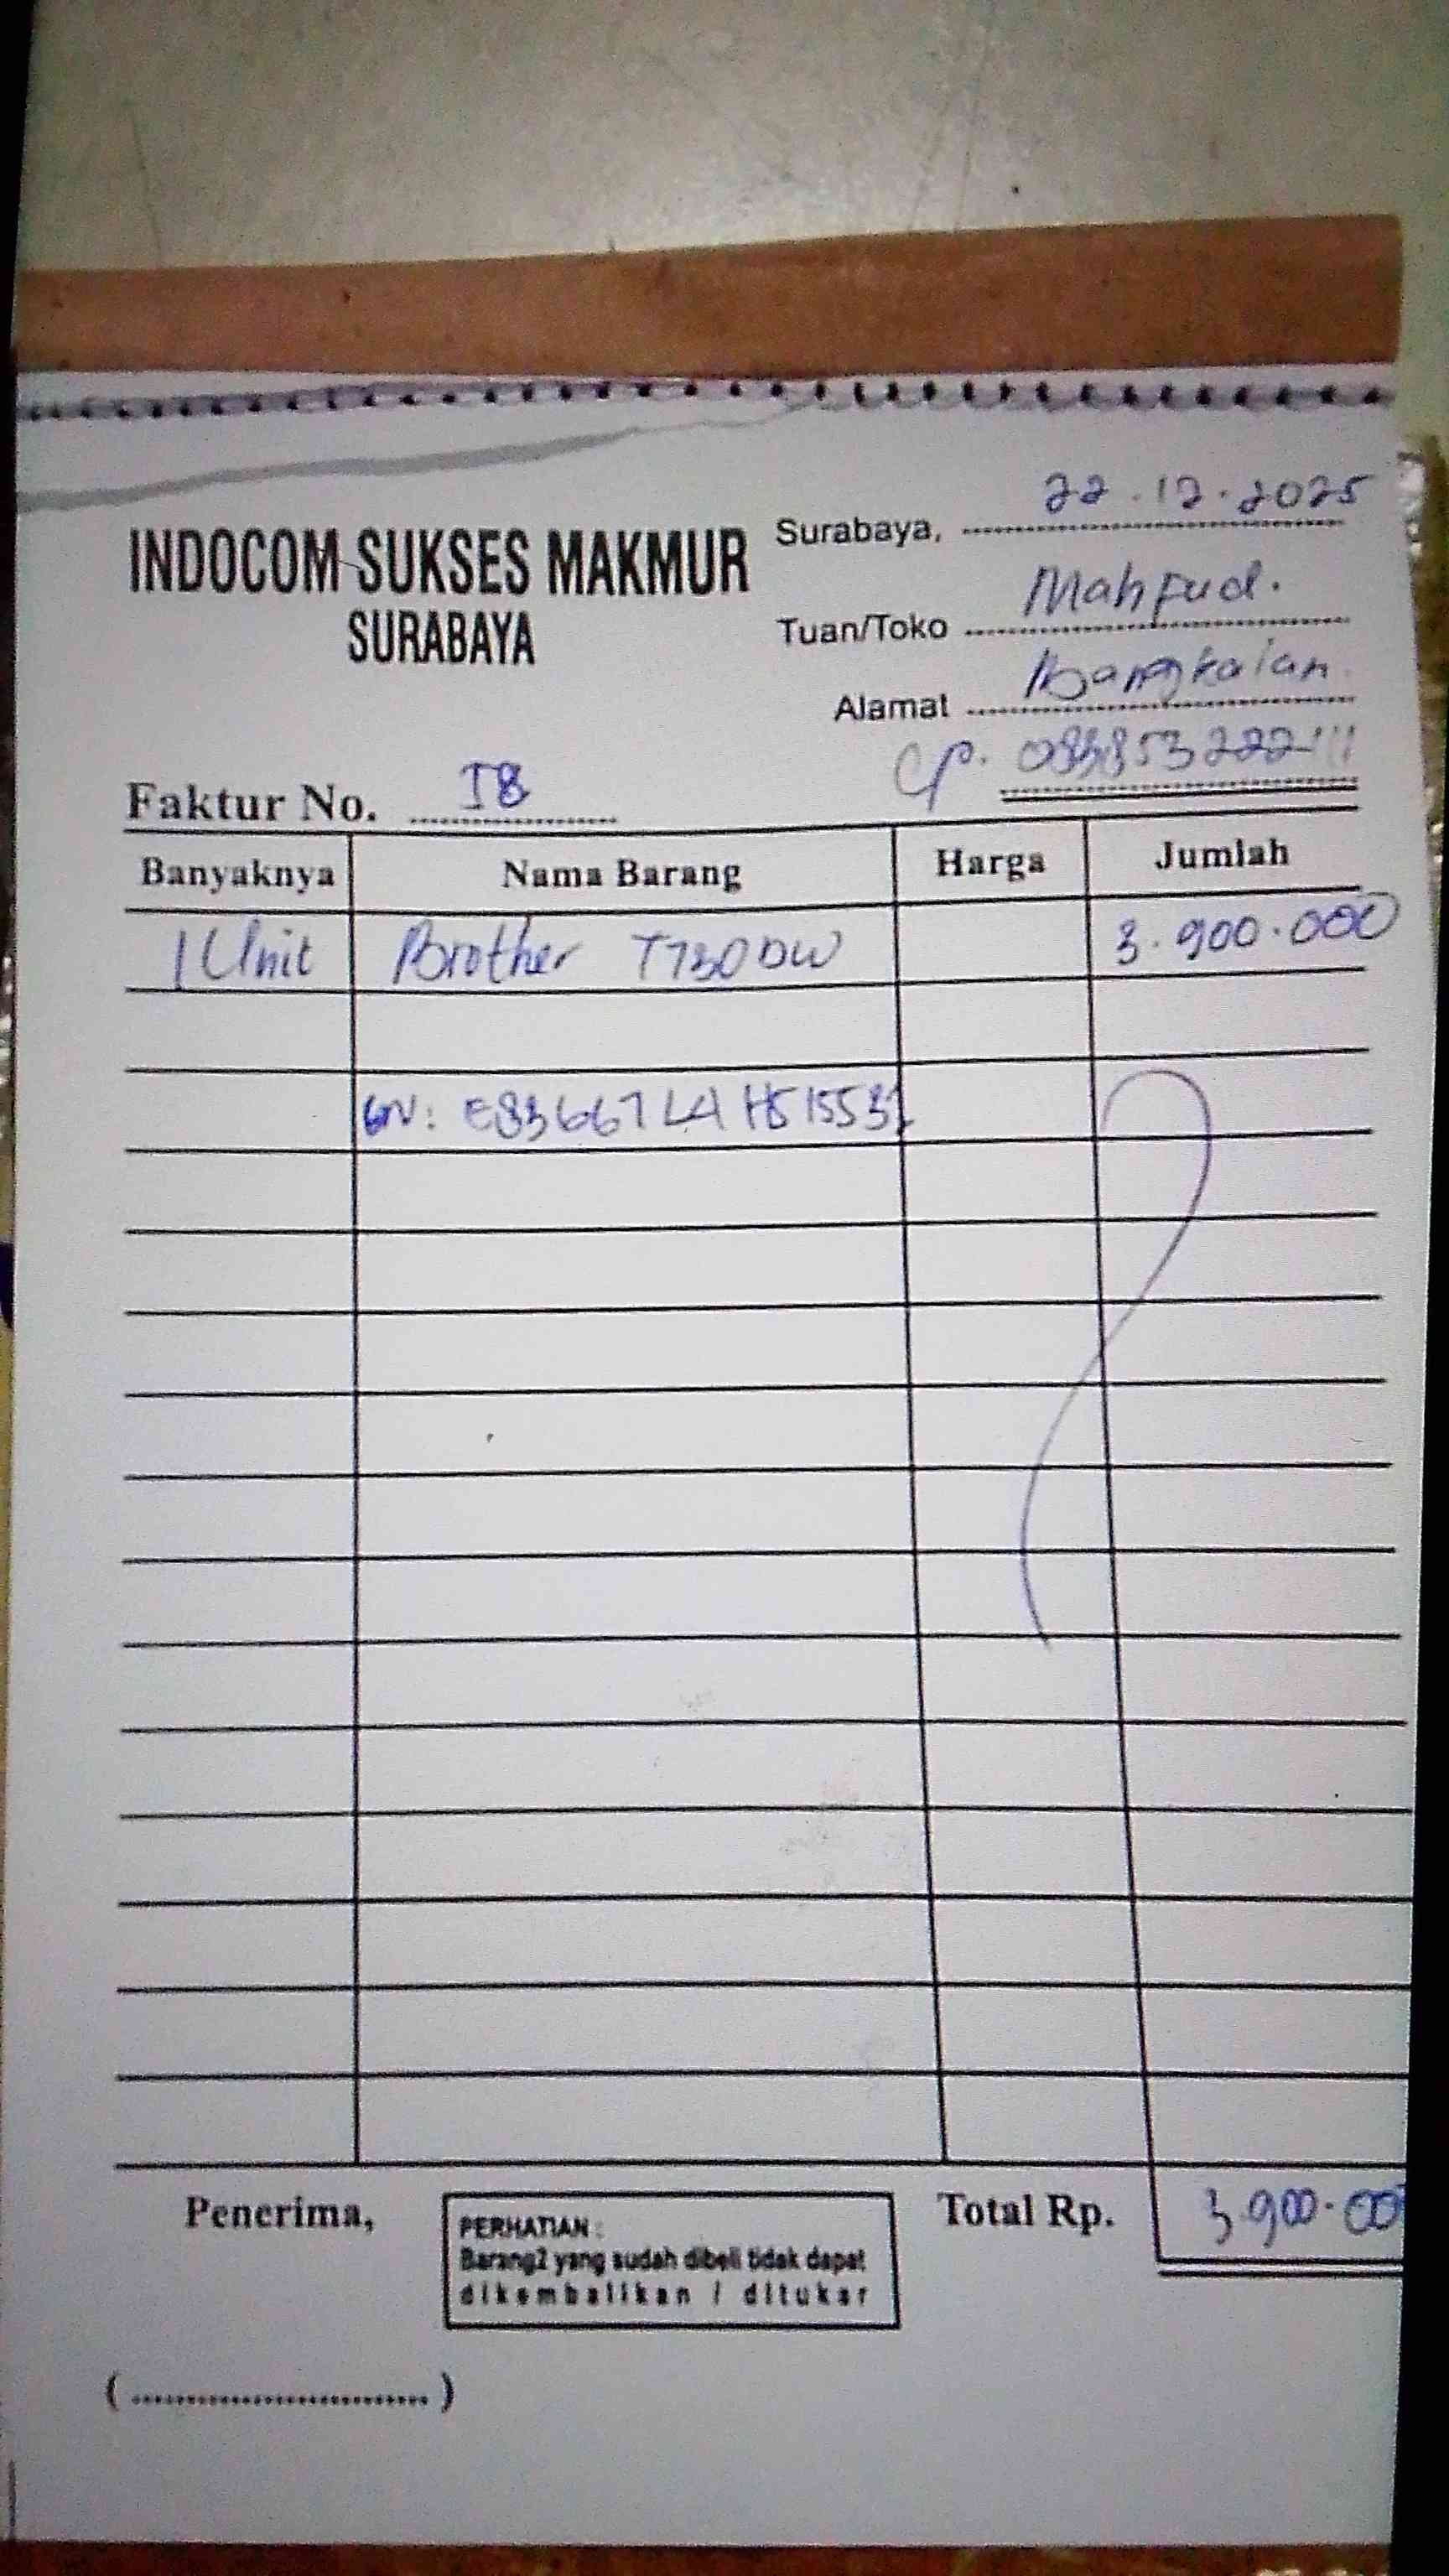 INDOCOM SUKSES MAKMUR
SURABAYA
Surabaya, 22.12.2025
Tuan/Toko Mahfud.
Alamat Bangkalan
CP.
Faktur No. TB
Banyaknya Nama Barang Harga Jumlah
1 Unit Brother T730DW 3.900.000
SN:
Penerima,
PERHATIAN :
Barang2 yang sudah dibeli tidak dapat
dikembalikan / ditukar
Total Rp. 3.900.00
( .............................. )